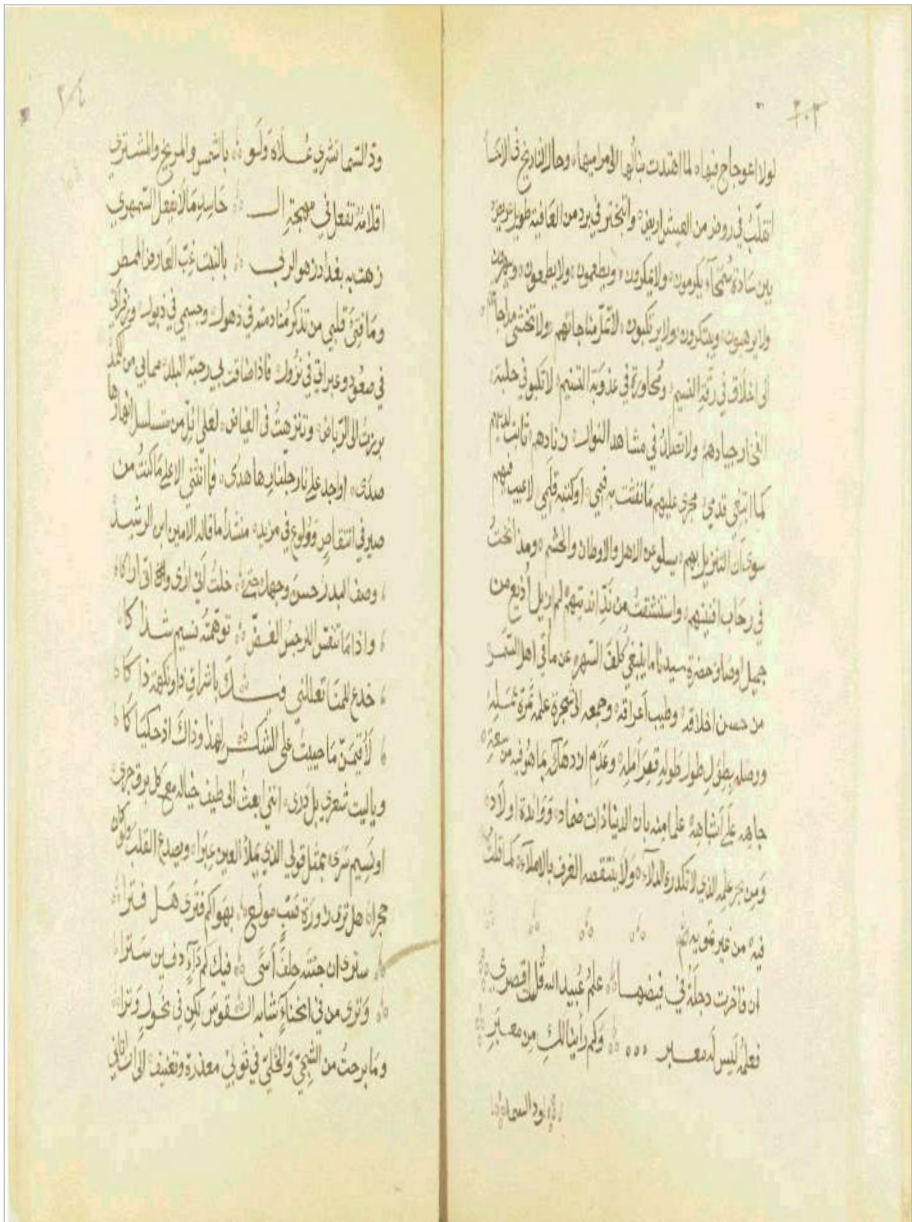 ٢٠٣
لولا اعوجاج فيها لما اهتدت بنالها الى مراميها وحال التاريخ
اتقلّب في روض من العيش اريض واتبختر في برد من العافية طويل عريض
بين سادة سُمَحاء يكرمون ولا يمكرون ويطعمون ولا يطمعون
ولا يرهبون ويبتكرون ولا يرتكبون لا تملّ مناجاتهم ولا تخشى
الى اخلاق في رقة النسيم ومحاورة في عذوبة التسنيم لا تكبو في حلبة
جيادهم ولا تصلد في مشاهد النوايب زنادهم ثابت لديهم
كما ابتغي قدمي مجرى عليهم ما نفثت به فمي او كتبه قلمي لا عيب فيهم
سوى ان النزيل بهم يسلو عن الاهل والاوطان والحشم ومذ انخت
في رحاب افنيتهم واستنشقت من ندّ انديتهم لم ازل اذيع من
جميل اوصاف حضرة سيدنا ما ينبغي كلف السهر عن مآقي اهل السمر
من حسن اخلاقه وطيب اعراقه وجمعه الى شجرة علمه ثمرة عمله
ووصله بطَول طوله قصر امله وعدم ازدهائه بما هو فيه من سعة
جاهه على اشباهه علما منه بان الدنيا ذات ضماد وَوَائدة اولاد
ومن بحر علمه الذي لا تكدره الدلاء ولا ينتقصه الغرف بالاملاء كما قلت
فيه من غير تمويه
ان فاخرت دجلة في فيضها علم عُبيد الله قُل اقصري
فعلمه ليس له معبر وكم رأينا لك من معبر
ود السما
٢٠٤
ود السما تشري عُلاه ولو بالشمس والمريخ والمشتري
اقلامه تفعل في مهجة الـ حاسد ما لا تفعل السمهري
زهت به بغداد زهو الربى بالنبت غبّ العارض الممطر
وما فتئ قلبي من تذكر منادمته في ذهول وجسمي في ذبول وزفراتي
في صعود وعبراتي في نزول فاذا ضاقت بي رحبة البلد مما بي من الكمد
برزت الى الرياض وتنزهت في الغياض لعلي ابلّ من سلسل انهارها
صدى او اجد على نار جلنارها هدى فما انثني الا على ما كنت من
صبر في انتقاص وولوع في مزيد منشدا ما قاله الامين ابن الرشيد
وصف البدر حسن وجهك حتى خلت اني ارى وما اني اراكا
واذا ما تنفس النرجس الغضّ توهمته نسيم شذاكا
خدع للمنا تعللني فيـ ـك باشراق ذا ونكهة ذاكا
لاقيمنّ ما حييت على الشكـ ـر لهذا وذاك اذ حكياكا
وياليت شعري بل درى انني ابعث الى طيف خياله مع كل برق جرى
او نسيم سرى بمثل قولي الذي يملأ العين عِبَرا ويصدع القلب ولو كان
حجرا هل ترى زورة صب مولع بهواكم فترى هل فترا
سترى ان جئته حلف أسى فيك كم داء دفين سترا
وترى من في انحناء شابه القوس لكن في نحول وترا
وما برحت من الشجيّ والخليّ في ثوبي معذرة وتعنيف الى ان اتاني